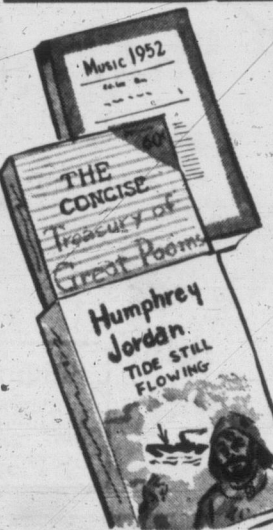 Music 1952
60¢
THE
CONCISE
Treasury of
Great Poems
Humphrey
Jordan
TIDE STILL
FLOWING